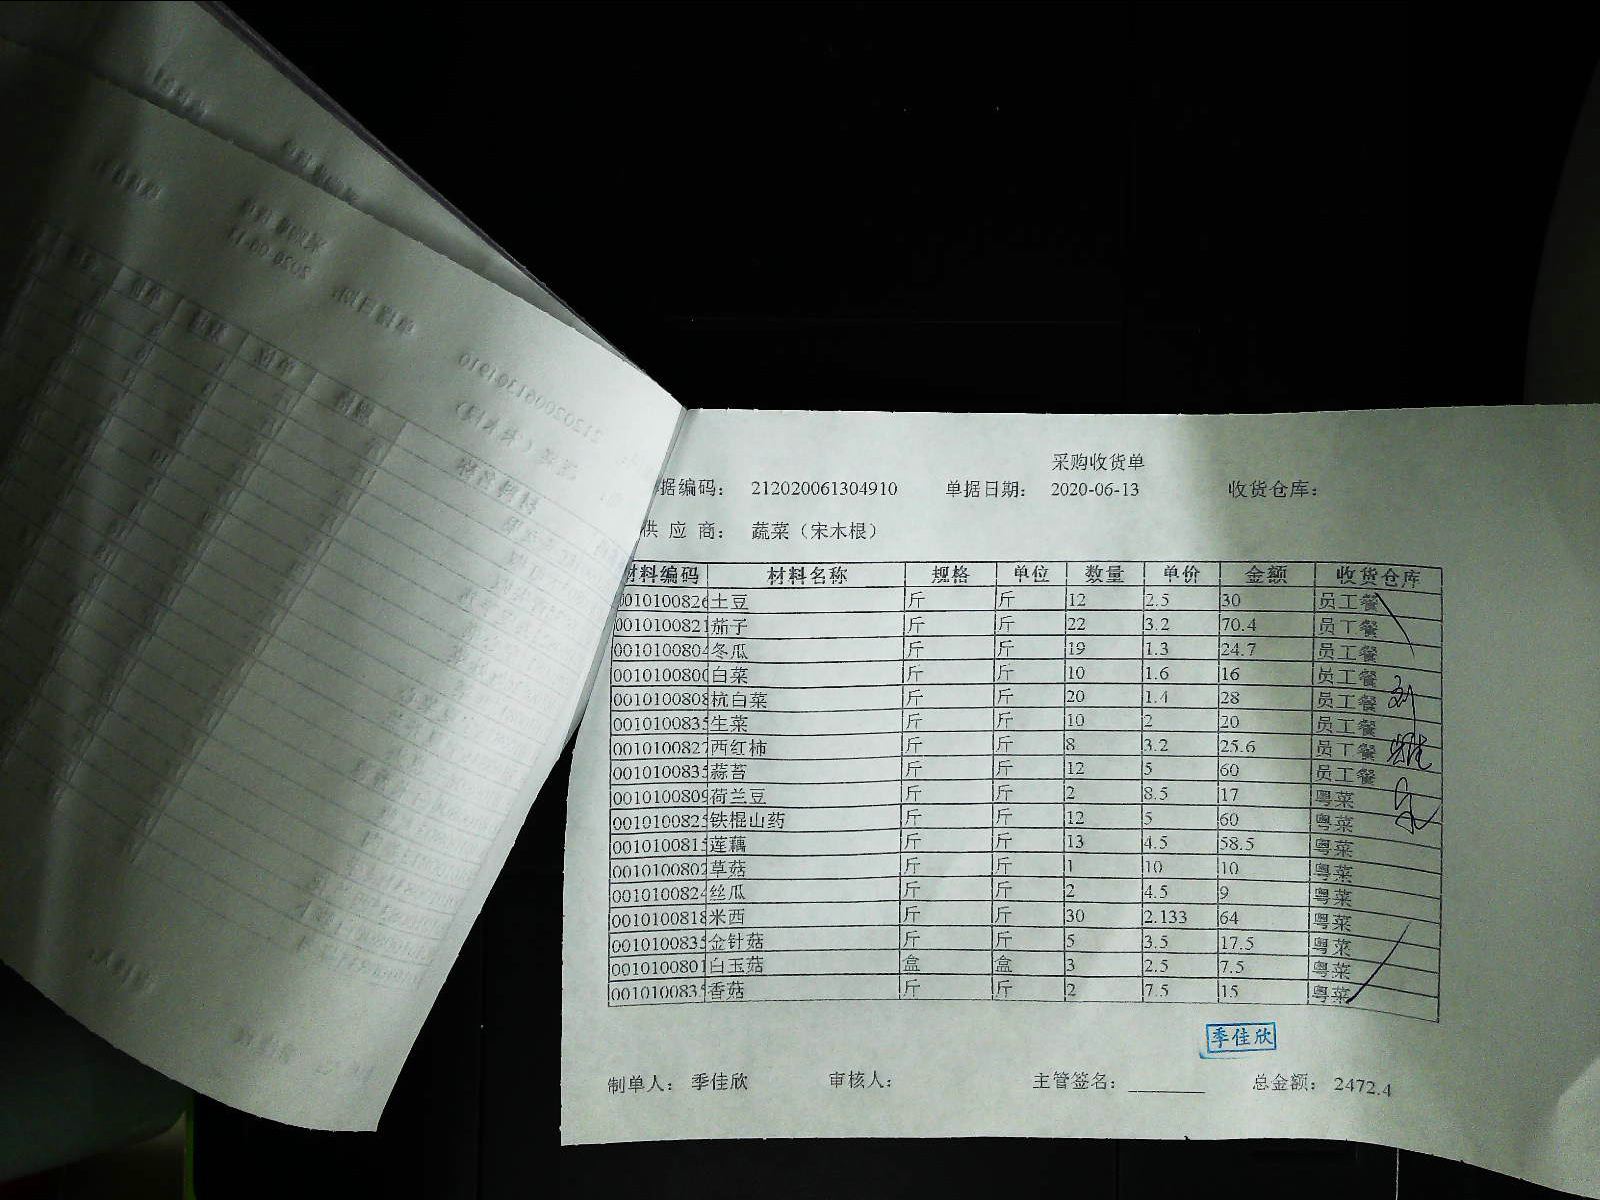 采购收货单
据编码： 212020061304910 单据日期： 2020-06-13 收货仓库：
供 应 商： 蔬菜（宋木根）
材料编码 材料名称 规格 单位 数量 单价 金额 收货仓库
0010100826 土豆 斤 斤 12 2.5 30 员工餐
0010100821 茄子 斤 斤 22 3.2 70.4 员工餐
0010100804 冬瓜 斤 斤 19 1.3 24.7 员工餐
0010100800 白菜 斤 斤 10 1.6 16 员工餐
0010100808 杭白菜 斤 斤 20 1.4 28 员工餐
0010100835 生菜 斤 斤 10 2 20 员工餐
0010100827 西红柿 斤 斤 8 3.2 25.6 员工餐
0010100835 蒜苔 斤 斤 12 5 60 员工餐
0010100809 荷兰豆 斤 斤 2 8.5 17 粤菜
0010100825 铁棍山药 斤 斤 12 5 60 粤菜
0010100815 莲藕 斤 斤 13 4.5 58.5 粤菜
0010100802 草菇 斤 斤 1 10 10 粤菜
0010100824 丝瓜 斤 斤 2 4.5 9 粤菜
0010100818 米西 斤 斤 30 2.133 64 粤菜
0010100835 金针菇 斤 斤 5 3.5 17.5 粤菜
0010100801 白玉菇 盒 盒 3 2.5 7.5 粤菜
0010100835 香菇 斤 斤 2 7.5 15 粤菜
季佳欣
制单人： 季佳欣 审核人： 主管签名： 总金额： 2472.4